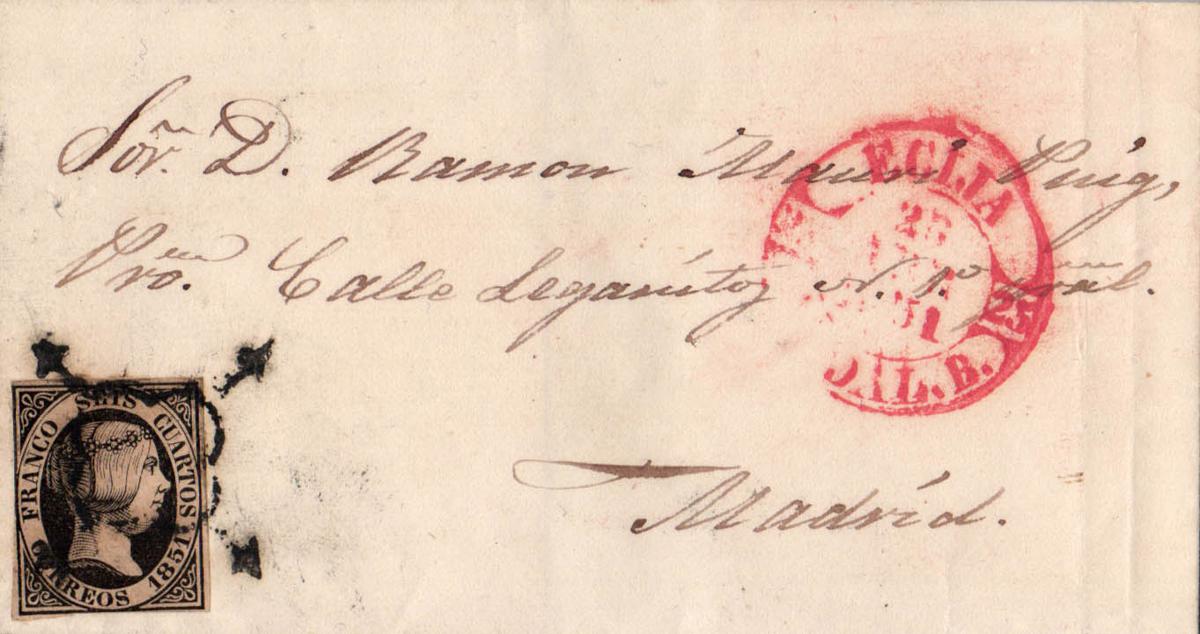 Sor. D. Ramon Mauri Puig,
Pro. Calle Leganitos N. 1.º pral.
Madrid.
ECIJA
25
51
DAL. B.
25
FRANCO SEIS CUARTOS
CORREOS 1851